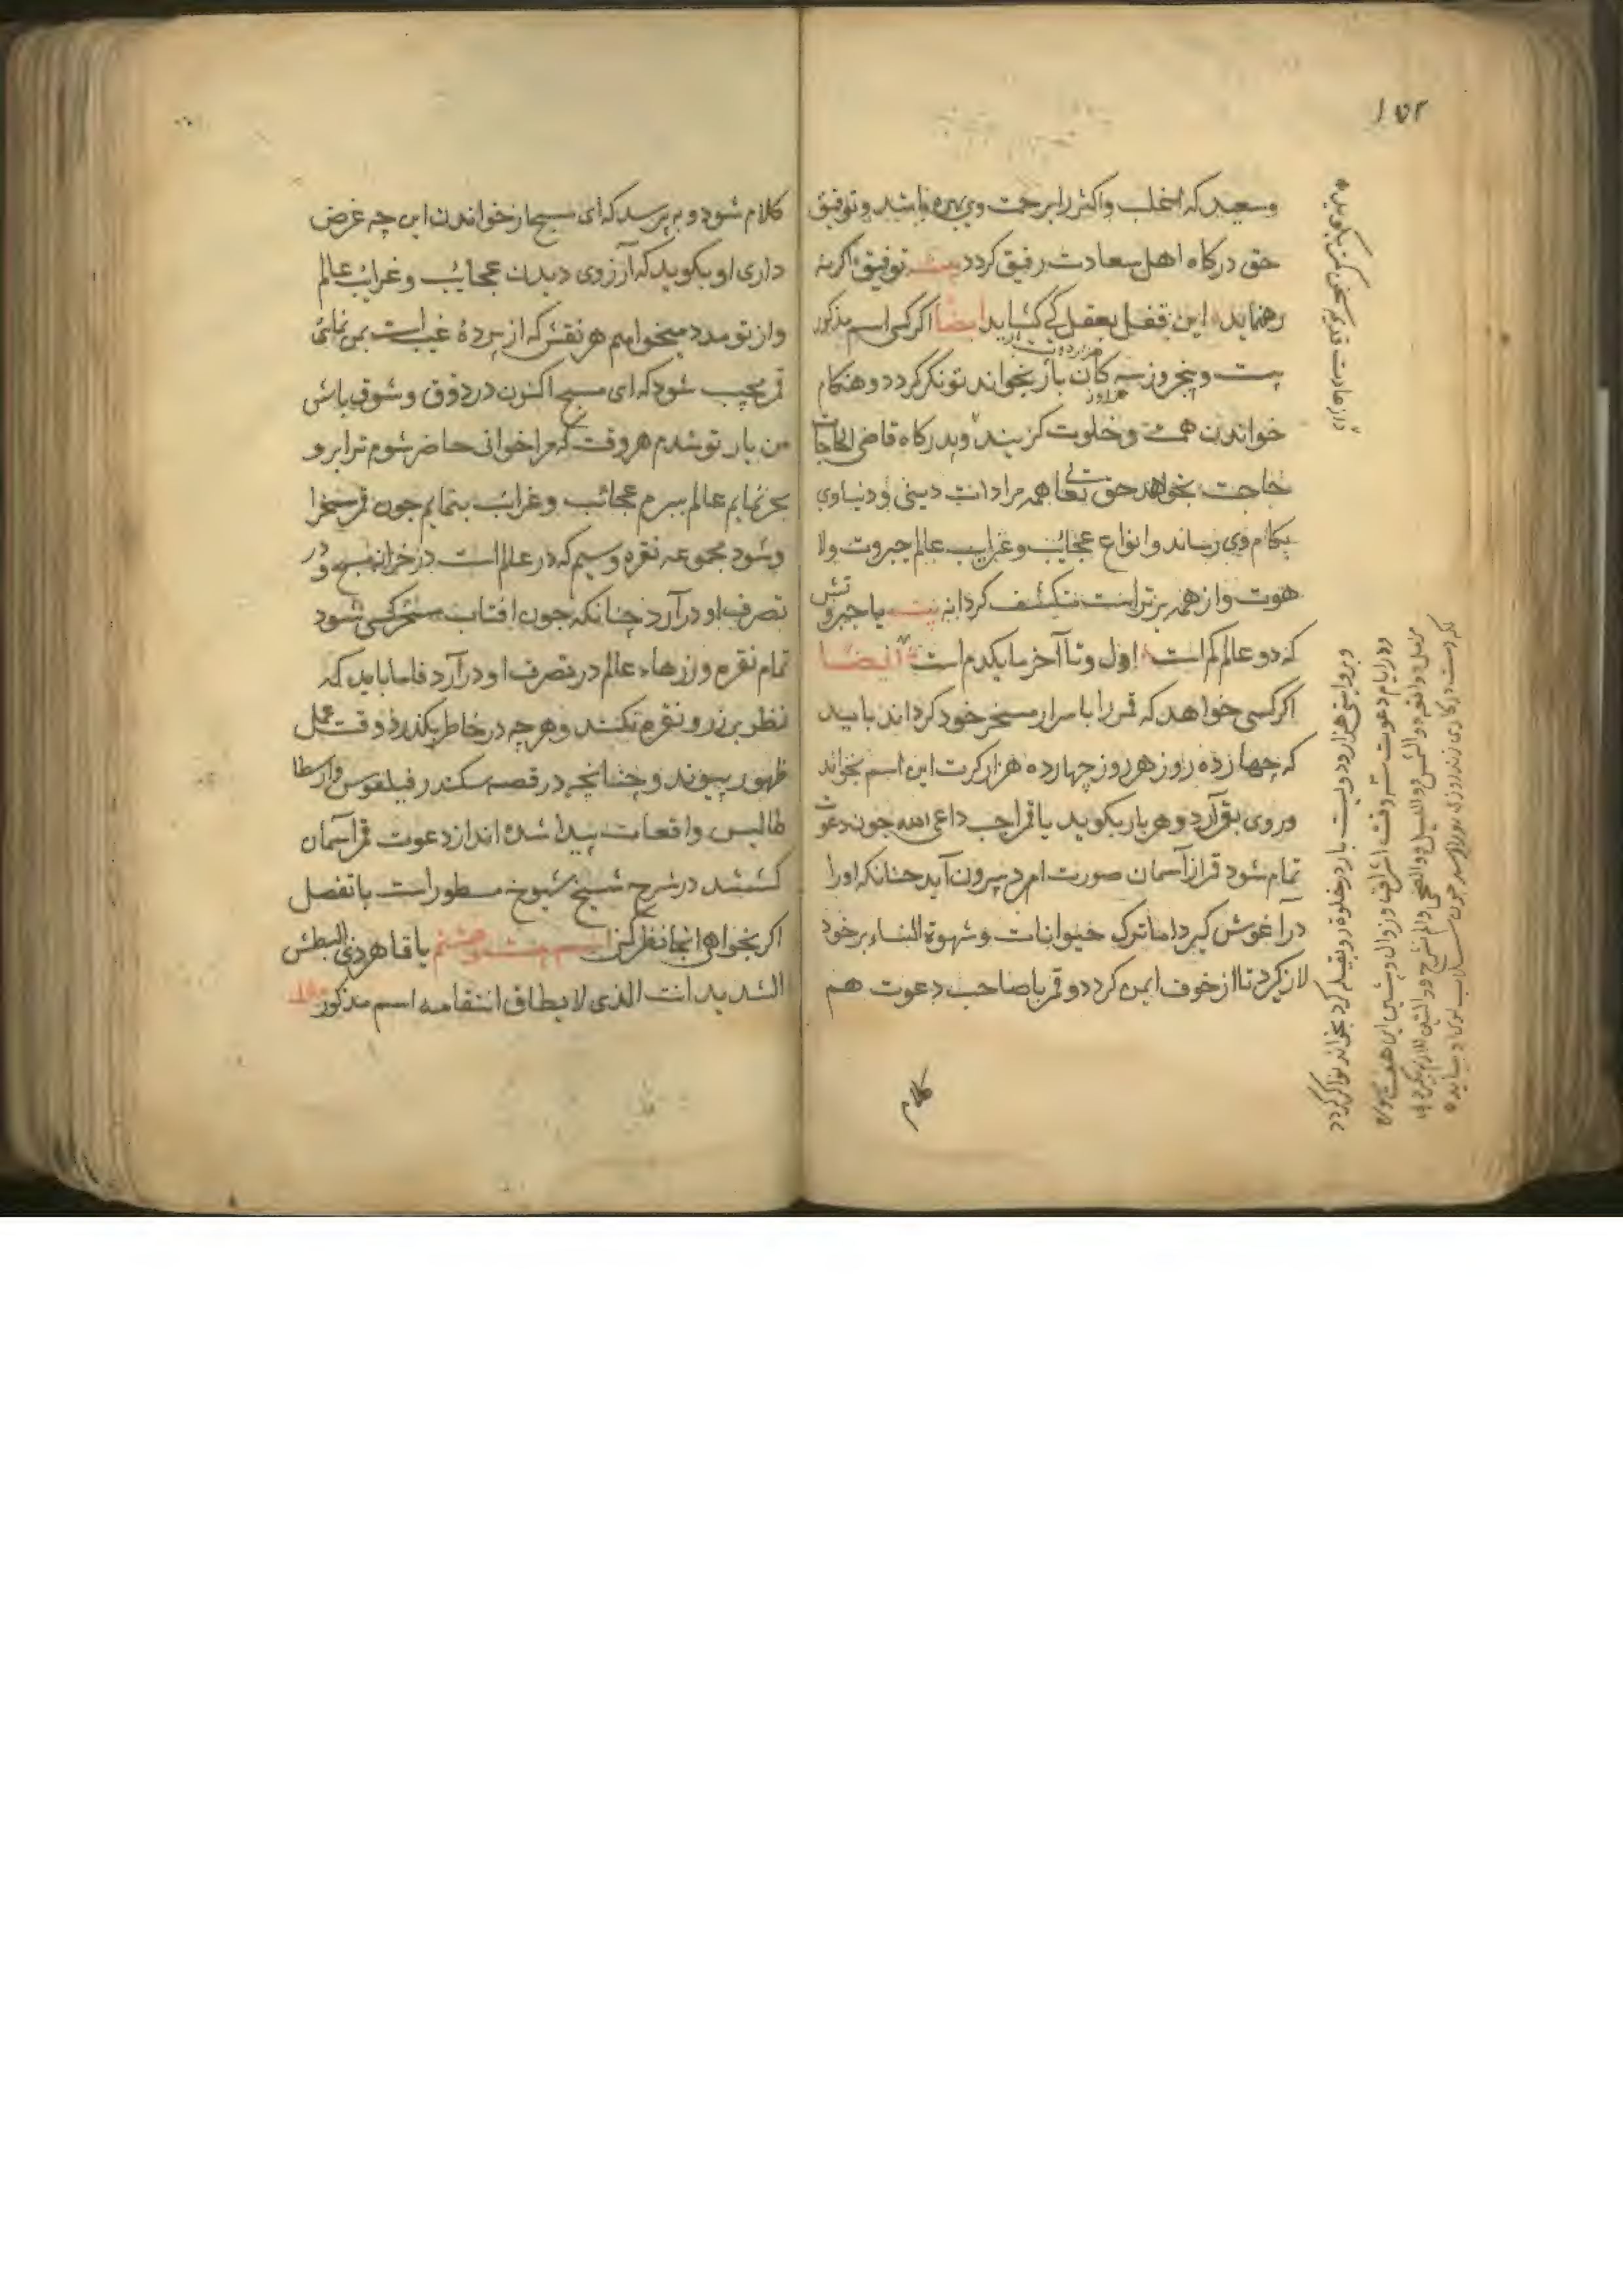 ۱۵۲
وسعید که اغلب واکثر را بر حمت وی بهره باشد و توفیق
حق در کاه اهل سعادت رفیق کردد بیت توفیق اکر نه
رهنماید این قفل بعقل کی کشاید ایضا اکر کسی اسم مذکور
بیست وپنج روز سه کان بار بخواند تونکر کردد و هنکام
خواندن همت وخلوت کزیند وبدرکاه قاضی الحاجات
حاجت بخواهد حق تعالی همه مرادات دینی و دنیاوی
بکام وی رساند وانواع عجایب وغرایب عالم جبروت ولا
هوت واز همه برتر است منکشف کرداند بیت یا جبروتش
که دو عالم کم است اول وتا آخر ما یکدم است ایضا
اکر کسی خواهد که قمر را با سرار مسخر خود کرداند باید
که چهارده روز هر روز چهارده هزار کرت این اسم بخواند
وروی بقمر آرد وهر بار بکوید یا قمر اجب داعی الله جون دعوت
تمام شود قمر از آسمان صورت امرد بیرون آید چنانکه اورا
در اغوش کیرد اما ترک حیوانات وشهوة النساء بر خود
لازم کرد تا از خوف ایمن کردد و قمر با صاحب دعوت هم
کلام
وبروایتی هزار ودویست بار در خلوة رو بقبله کرد بخواند توانکر کردد
ودر ایام دعوت سه وقت اشراق و زوال و پیشین این هفت سوره
مزمل واقعه والشمس واللیل والضحی والم نشرح والتین لازم
کلام شود و به پرسد که ای مسبح از خواندن این چه غرض
داری او بکوید که آرزوی دیدن عجایب وغرایب عالم
واز تو مدد میخواهم هر نقش که از پردهٔ غیب است بمن نمائی
قمر مجیب شود که ای مسبح اکنون در ذوق وشوق باش
من یار تو شدم هر وقت که مرا خوانی حاضر شوم ترا بر و
بحر نمایم عالم ببرم عجائب وغرائب بنمایم جون قمر مسخرا
وشود مجموعه نقره وسیم که در عالم است در خزانه مسبح و در
تصرف او در آرد چنانکه جون افتاب مسخر کسی شود
تمام نقره وزرهاء عالم در تصرف او در آرد فاما باید که
نظر بر زر و نقره نکند وهر چه در خاطر بکذرد در وقت عمل
ظهور پیوندد چنانچه در قصه سکندر فیلقوس وارسطا
طالیس واقعات پیدا شده اند از دعوت قمر آسمان
کشتند در شرح شیخ شیوخ مسطور است با تفصل
اکر بخواهی انجا نظر کن اسم بیست وهشتم یا قاهر ذی البطش
الشدید انت الذی لا یطاق انتقامه اسم مذکور